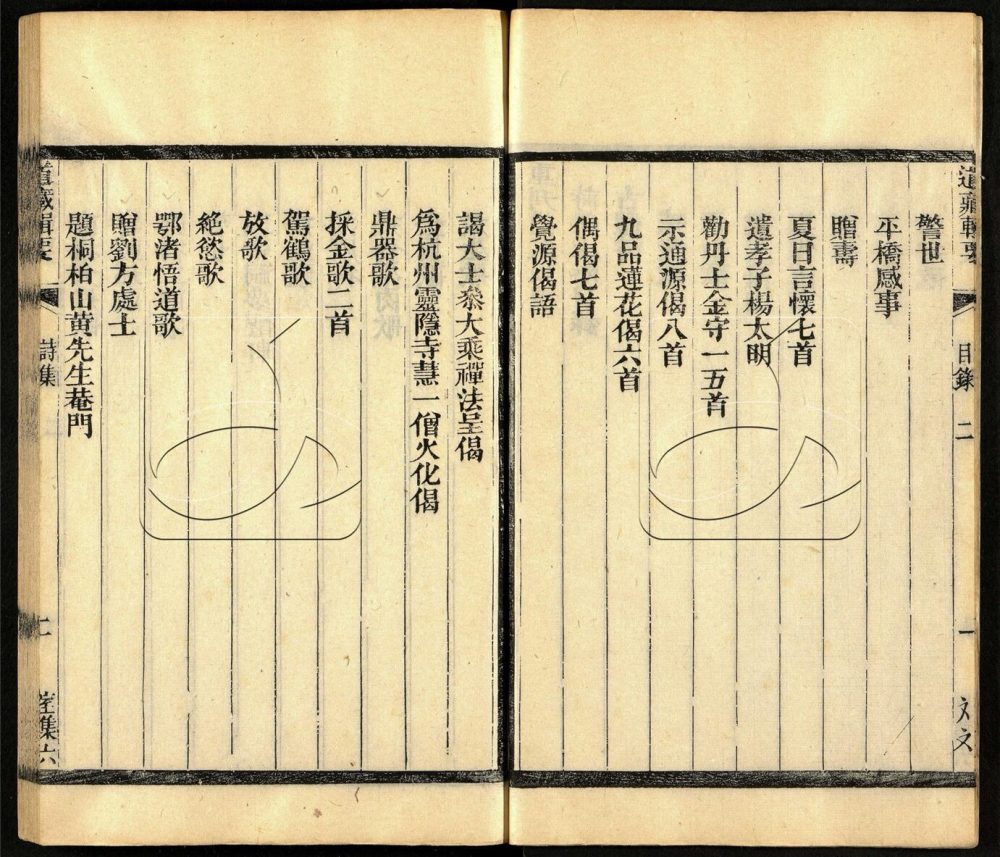 目錄
二
一
警世
平橋感事
贈壽
夏日言懷七首
遺孝子楊太明
勸丹士金守一五首
示通源偈八首
九品蓮花偈六首
偶偈七首
覺源偈語
謁大士叅大乘禪法呈偈
爲杭州靈隱寺慧一僧火化偈
鼎器歌
採金歌二首
駕鶴歌
放歌
絶慾歌
鄂渚悟道歌
贈劉方處士
題桐柏山黄先生菴門
道藏輯要
詩集
集六